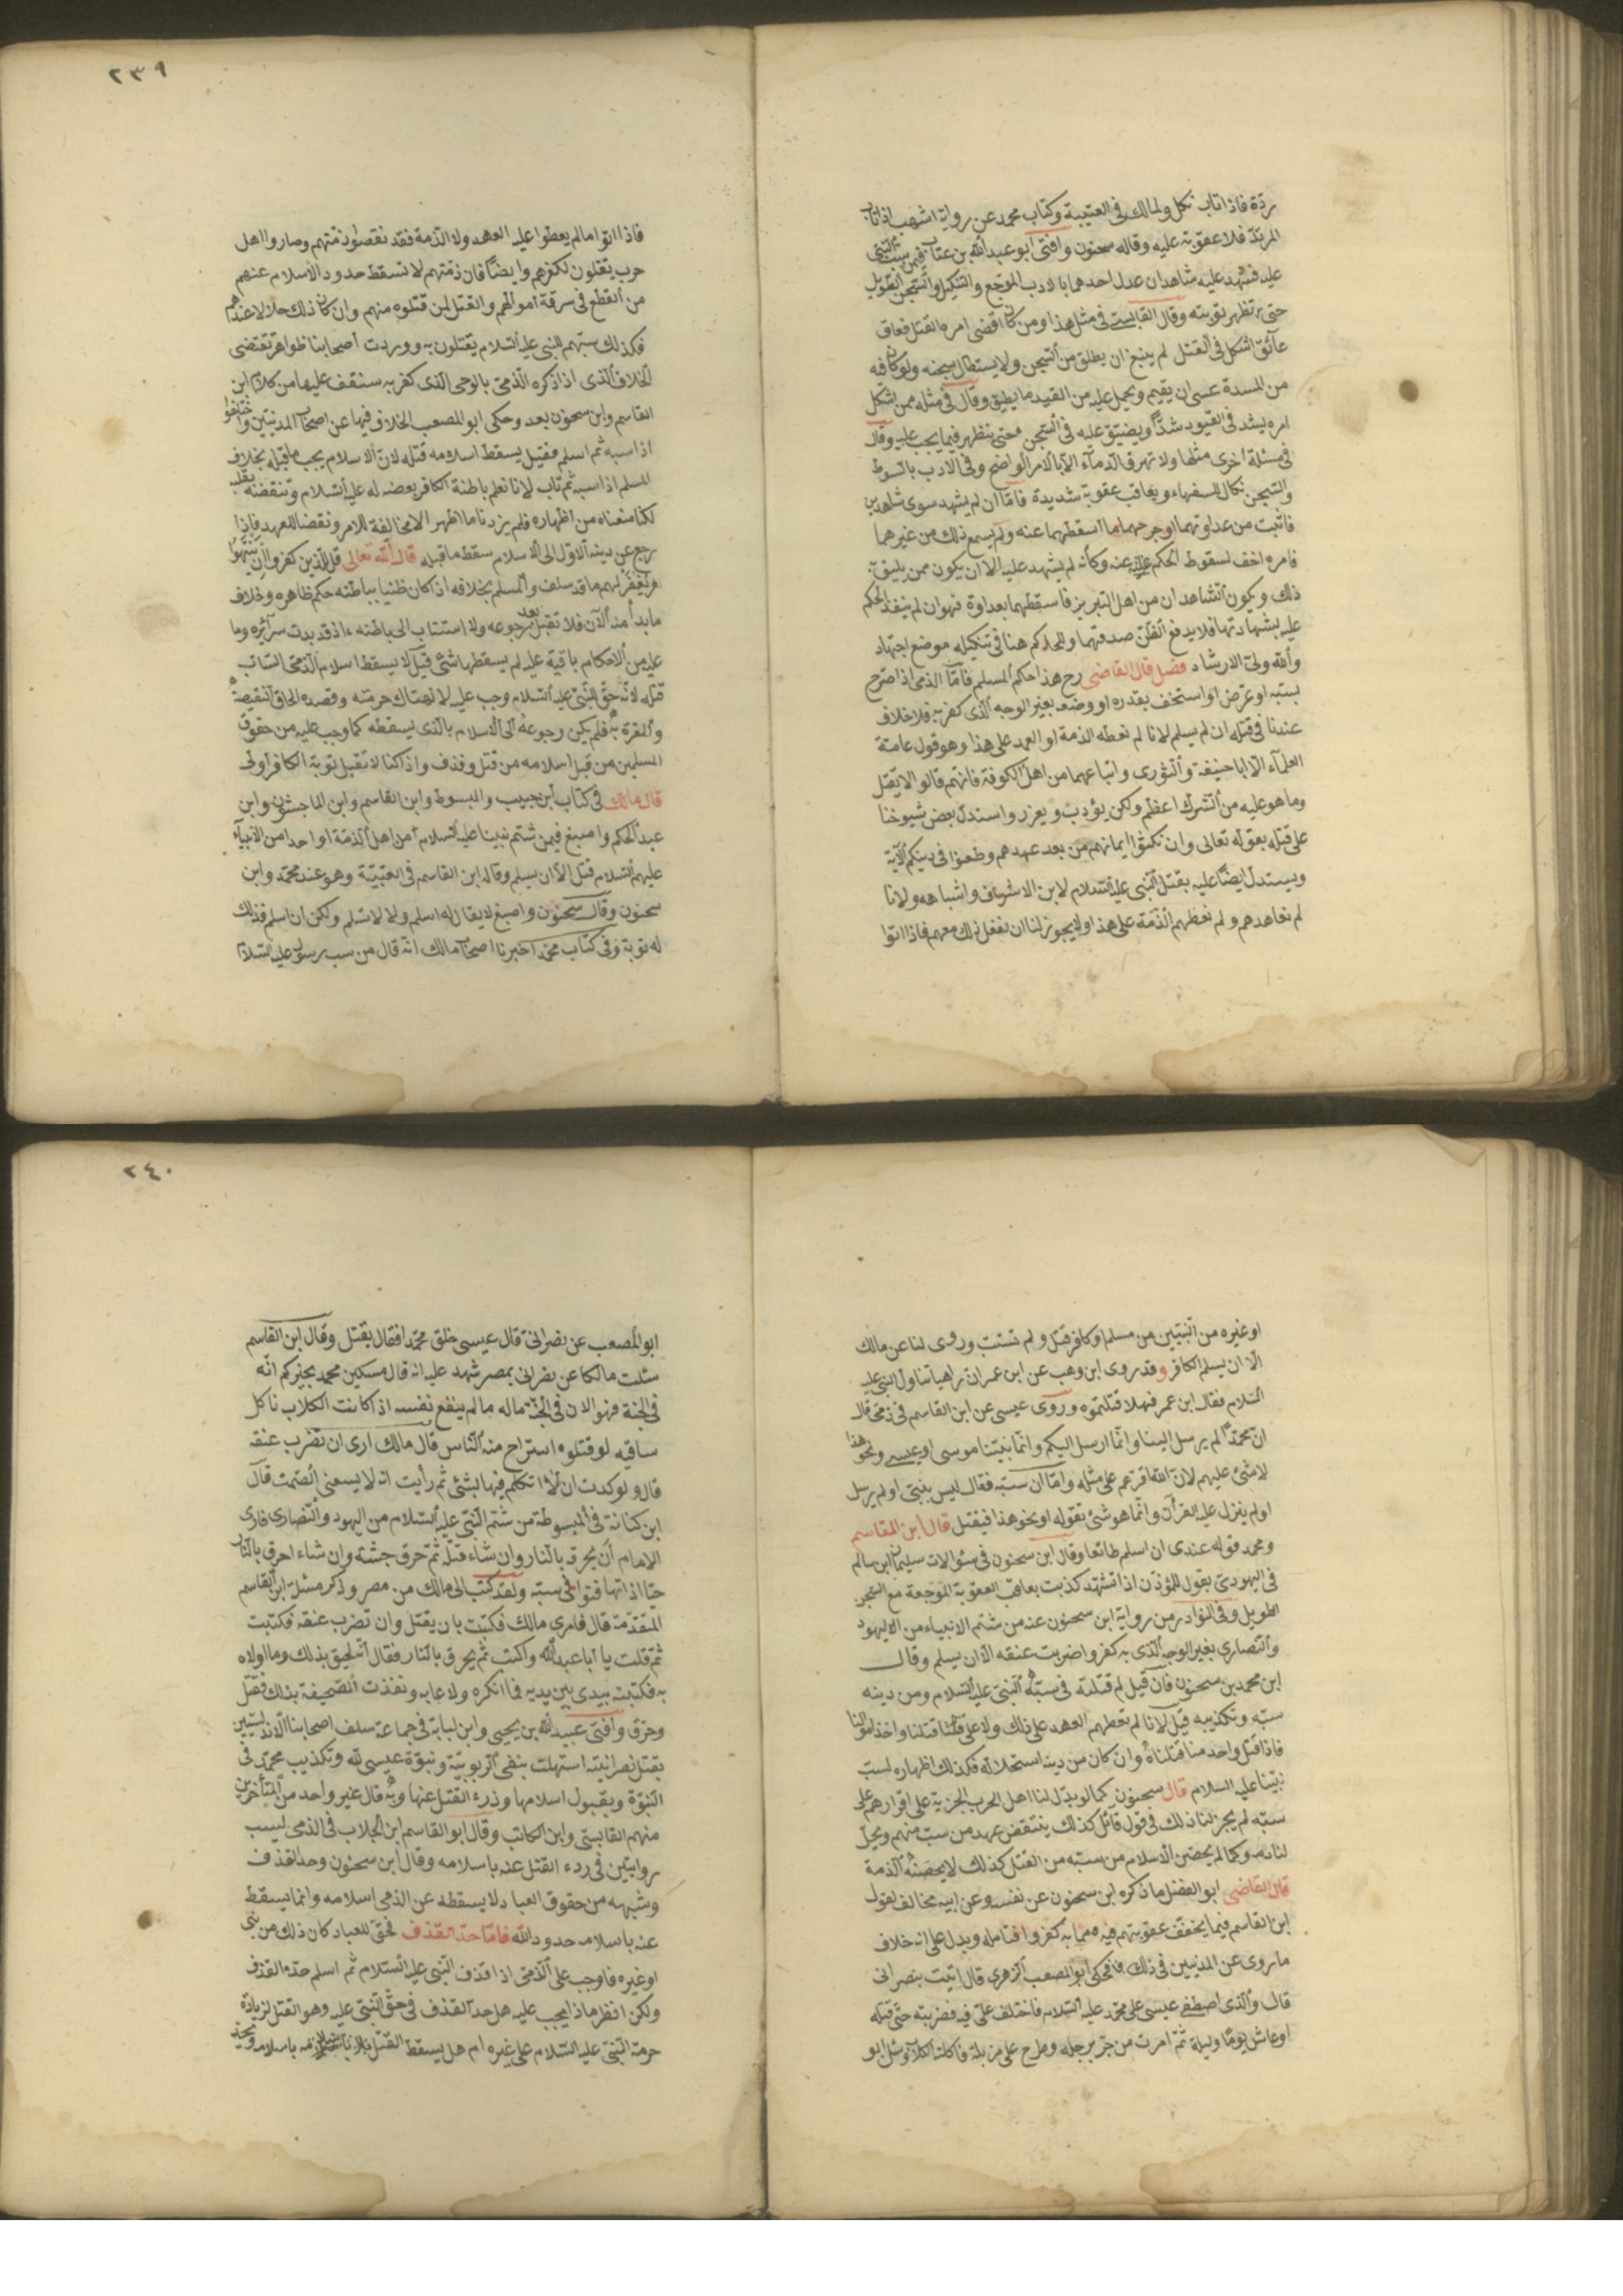 ردّة فاذا تاب نكل ولمالك فى العتيبية وكتاب محمد عن رواية اشهب اذا تاب
المرتدّ فلا عقوبة عليه وقاله سحنون وافتى ابو عبد الله بن عتاب فيمن سبّ النبى
عليه فشهد عليه شاهدان عدل احدهما بالادب الموجع والتنكيل والسّجن الطويل
حتى تظهر توبته وقال القابسى فى مثل هذا ومن كان اقصى امره القتل فعاق
عآئق اشكل فى القتل لم ينبغ ان يطلق من السّجن ولا يستطال سجنه ولو كان فيه
من المدة عسى ان يقيم ويحمل عليه من القيد ما يطيق وقال فى مثله ممن اشكل
امره يشد فى القيود شدًّا ويضيّق عليه فى السّجن حتى ينظر فيما يجب عليه وقال
فى مسئلة اخرى مثلها ولا تهرق الدمآء الّا بالامر الواضح وفى الادب بالسّوط
والسّجن نكال للسفهاء ويعاقب عقوبة شديدة فامّا ان لم يشهد سوى شاهدين
فاثبت من عداوتهما او جرحهما ما اسقطهما عنه ولم يسمع ذلك من غيرهما
فامره اخف لسقوط الحكم عنه وكأنه لم يشهد عليه الا ان يكون ممن يليق به
ذلك ويكون الشاهدان من اهل التبريز فاسقطهما بعداوة فهو ان لم ينفذ الحكم
عليه بشهادتهما فلا يدفع الظّنّ صدقهما وللحاكم هنا فى تنكيله موضع اجتهاد
والله ولىّ الارشاد فصل قال القاضى رح هذا حكم المسلم فامّا الذمى اذا صرّح
بسبّه او عرّض او استخف بقدره او وصفه بغير الوجه الّذى كفر به فلا خلاف
عندنا فى قتله ان لم يسلم لانا لم نعطه الذمة او العهد على هذا وهو قول عامّة
العلمآء الّا ابا حنيفة والثورى واتباعهما من اهل الكوفة فانهم قالوا لا يقتل
وما هو عليه من الشّرك اعظم ولكن يؤدب ويعزر واستدل بعض شيوخنا
على قتله بقوله تعالى وان نكثوا ايمانهم من بعد عهدهم وطعنوا فى دينكم الآية
ويستدل ايضًا عليه بقتل النّبى عليه السّلام لابن الاشرف واشباهه ولانا
لم نعاهدهم ولم نعطهم الذّمة على هذا ولا يجوز لنا ان نفعل ذلك معهم فاذا اتوا
٢٣٩
فاذا اتوا ما لم يعطوا عليه العهد ولا الذّمة فقد نقضوا ذمّتهم وصاروا اهل
حرب يقتلون لكفرهم وايضًا فان ذمّتهم لا تسقط حدود الاسلام عنهم
من القطع فى سرقة اموالهم والقتل لمن قتلوه منهم وان كان ذلك حلالا عندهم
فكذلك سبّهم للنبى عليه السّلام يقتلون به ووردت لأصحابنا ظواهر تقتضى
الخلاف الّذى اذا ذكره الذّمىّ بالوجه الّذى كفر به ستقف عليها من كلام ابن
القاسم وابن سحنون بعد وحكى ابو المصعب الخلاف فيها عن اصحابنا المدنيّين واختلفوا
اذا سبه ثم اسلم فقيل يسقط اسلامه قتله لانّ الاسلام يجب ما قبله بخلاف
المسلم اذا سبه ثم تاب لانا نعلم باطنة الكافر بعضه له عليه السّلام وتنقصه بقلبه
لكنا منعناه من اظهاره فلم يزدنا ما اظهره الا مخالفة للامر ونقضا للعهد فاذا
رجع عن دينه الاوّل الى الاسلام سقط ما قبله قال الله تعالى قل للّذين كفروا ان ينتهوا
يغفر لهم ما قد سلف والمسلم بخلافه اذ كان ظننا بباطنه حكم ظاهره وخلاف
ما بدأ منه الآن فلا تقبل بعد رجوعه ولا استنتاب الى باطنه اذ قد بدت سرآئره وما
عليه من الاحكام باقية عليه لم يسقطها شئ وقيل لا يسقط اسلام الذّمى السّاب
قتله لانّه حقّ للنّبىّ عليه السّلام وجب عليه لانتهاك حرمته وقصده الحاق النّقيصة
والمعرّة به فلم يكن رجوعه الى الاسلام بالّذى يسقطه كما وجب عليه من حقوق
المسلمين من قبل اسلامه من قتل وقذف واذا كنا لا نقبل توبة الكافر اولى
قال مالك فى كتاب ابن حبيب والمبسوط وابن القاسم وابن الماجشون وابن
عبد الحكم واصبغ فيمن شتم نبينا عليه السّلام من اهل الذّمة او احدا من الانبيآء
عليهم السّلام قتل الّا ان يسلم وقاله ابن القاسم فى العتبيّة وهو عند محمّد وابن
سحنون وقال سحنون واصبغ لا يقال له اسلم ولا لا تسلم ولكن ان اسلم فذلك
له توبة وفى كتاب محمّد اخبرنا اصحاب مالك انّه قال من سب رسول عليه السّلام
او غيره من النّبيّين من مسلم او كافر قتل ولم تستتب وروى لنا عن مالك
الّا ان يسلم الكافر وقد روى ابن وهب عن ابن عمر ان راهبا تناول النبى عليه
السّلام فقال ابن عمر فهلا قتلتموه وروى عيسى عن ابن القاسم فى ذمّى قال
انّ محمّدًا لم يرسل الينا وانّما ارسل اليكم وانّما نبيّنا موسى او عيسى ونحو هذا
لا شئ عليهم لانّ الله اقرّهم على مثله وامّا ان سبّه فقال ليس بنبىّ او لم يرسل
او لم ينزل عليه القرآن وانّما هو شئ تقوله او نحو هذا فيقتل قال ابن القاسم
ومحمد قوله عندى ان اسلم طائعا وقال ابن سحنون فى سؤالات سليمان ابن سالم
فى اليهودىّ يقول للمؤذّن اذا تشهّد كذبت يعاقب العقوبة الموجعة مع السّجن
الطويل وفى النوادر من رواية ابن سحنون عنه من شتم الانبياء من اليهود
والنّصارى بغير الوجه الّذى به كفروا ضربت عنقه الّا ان يسلم وقال
ابن محمد بن سحنون فان قيل لم قتلته فى سبّه النّبى عليه السّلام ومن دينه
سبّه وتكذيبه قيل لانا لم نعطهم العهد على ذلك ولا على قتلنا واخذ اموالنا
فاذا قتل واحد منا قتلناه وان كان من دينه استحلاله فكذلك اظهاره لسبّ
نبيّنا عليه السلام قال سحنون كما لو بذل لنا اهل الحرب الجزية على اقرارهم على
سبّه لم يجز لنا ذلك فى قول قائل كذلك ينتقض عهد من سبّ منهم ويحلّ
لنا دمه وكما لم يحصّن الاسلام من سبّه من القتل كذلك لا يحصّنه الذمة
قال القاضى ابو الفضل ما ذكره ابن سحنون عن نفسه وعن ابيه مخالف لقول
ابن القاسم فيما يخفف عقوبتهم فيه مما به كفروا فتامله ويدل على انه خلاف
ما روى عن المدنيين فى ذلك فحكى ابو المصعب الزهرى قال اتيت بنصرانى
قال والّذى اصطفى عيسى على محمّد عليه السّلام فاختلف علىّ فيه فضربته حتّى قتله
او عاش يومًا وليلة ثمّ امرت من جرّ برجله وطرح على مزبلة فاكلته الكلاب وسئل ابو
٢٤٠
ابو المصعب عن نصرانىّ قال عيسى خلق محمّدا فقال يقتل وقال ابن القاسم
سئلت مالكا عن نصرانى بمصر شهد عليه انه قال مسكين محمد يخبركم انّه
فى الجنة فهو الان فى الجنّة ماله ما لم ينفع نفسه اذ كانت الكلاب تاكل
ساقيه لو قتلوه استراح منه النّاس قال مالك ارى ان تضرب عنقه
قال ولو كدت ان لا اتكلّم فيها بشئ ثم رأيت انه لا يسعنى الصّمت قال
ابن كنانة فى المبسوطة من شتم النّبى عليه السّلام من اليهود والنّصارى فارى
الامام ان يحرقه بالنّار وان شاء قتله ثمّ حرق جثّته وان شاء احرق بالنّار
حيّا اذا تهافتوا فى سبّه ولقد كتب الى مالك من مصر وذكر مسئلة ابن القاسم
المتقدّمة قال فامرى مالك فكتبت بان يقتل وان تضرب عنقه فكتبت
ثمّ قلت يا ابا عبد الله واكتب ثمّ يحرق بالنّار فقال انّه لحقيق بذلك وما اولاه
به فكتبته بيدى بين يديه فما انكره ولا عابه ونفذت الصّحيفة بذلك فقتل
وحرّق وافتى عبيد الله بن يحيى وابن لبابة فى جماعة سلف اصحابنا الاندلسيّين
بقتل نصرانيّة استهلت بنفى الرّبوبيّة ونبوّة عيسى لله وتكذيب محمّد فى
النّبوّة ويقبول اسلامها وذرء القتل عنها وبه قال غير واحد من المتأخرين
منهم القابسىّ وابن الكاتب وقال ابو القاسم ابن الجلاب فى الذمى ليسب
روايتين فى ردء القتل عنه باسلامه وقال ابن سحنون وحد القذف
وشبهه من حقوق العباد لا يسقطه عن الذمى اسلامه وانما يسقط
عنه باسلامه حدود الله فامّا حدّ القذف فحقّ للعباد كان ذلك من نبى
او غيره فاوجب على الذّمّى اذا قذف النّبى عليه السّلام ثم اسلم حدّ القذف
ولكن انظر ماذا يجب عليه هل حدّ القذف فى حقّ النّبىّ عليه وهو القتل لزيادة
حرمة النّبىّ عليه السّلام على غيره ام هل يسقط القتل باسلامه ويحدّ